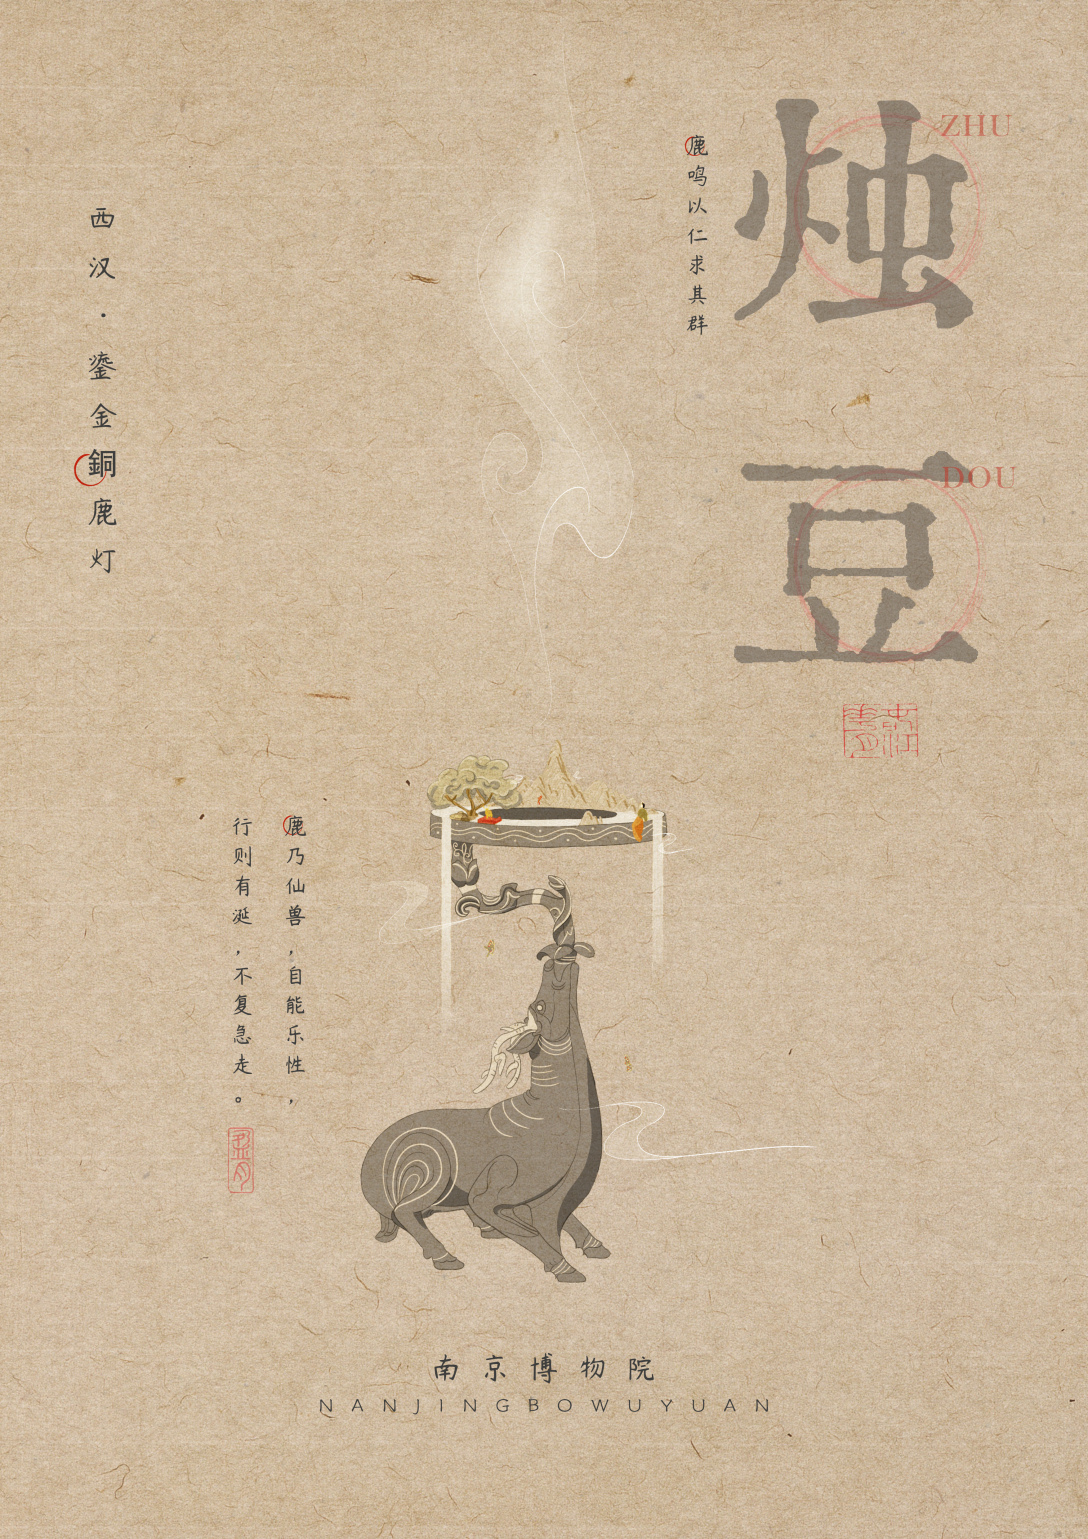 烛豆
ZHU
DOU
鹿鸣以仁求其群
西汉·鎏金銅鹿灯
鹿乃仙兽,自能乐性,
行则有涎,不复急走。
南京博物院
NANJINGBOWUYUAN